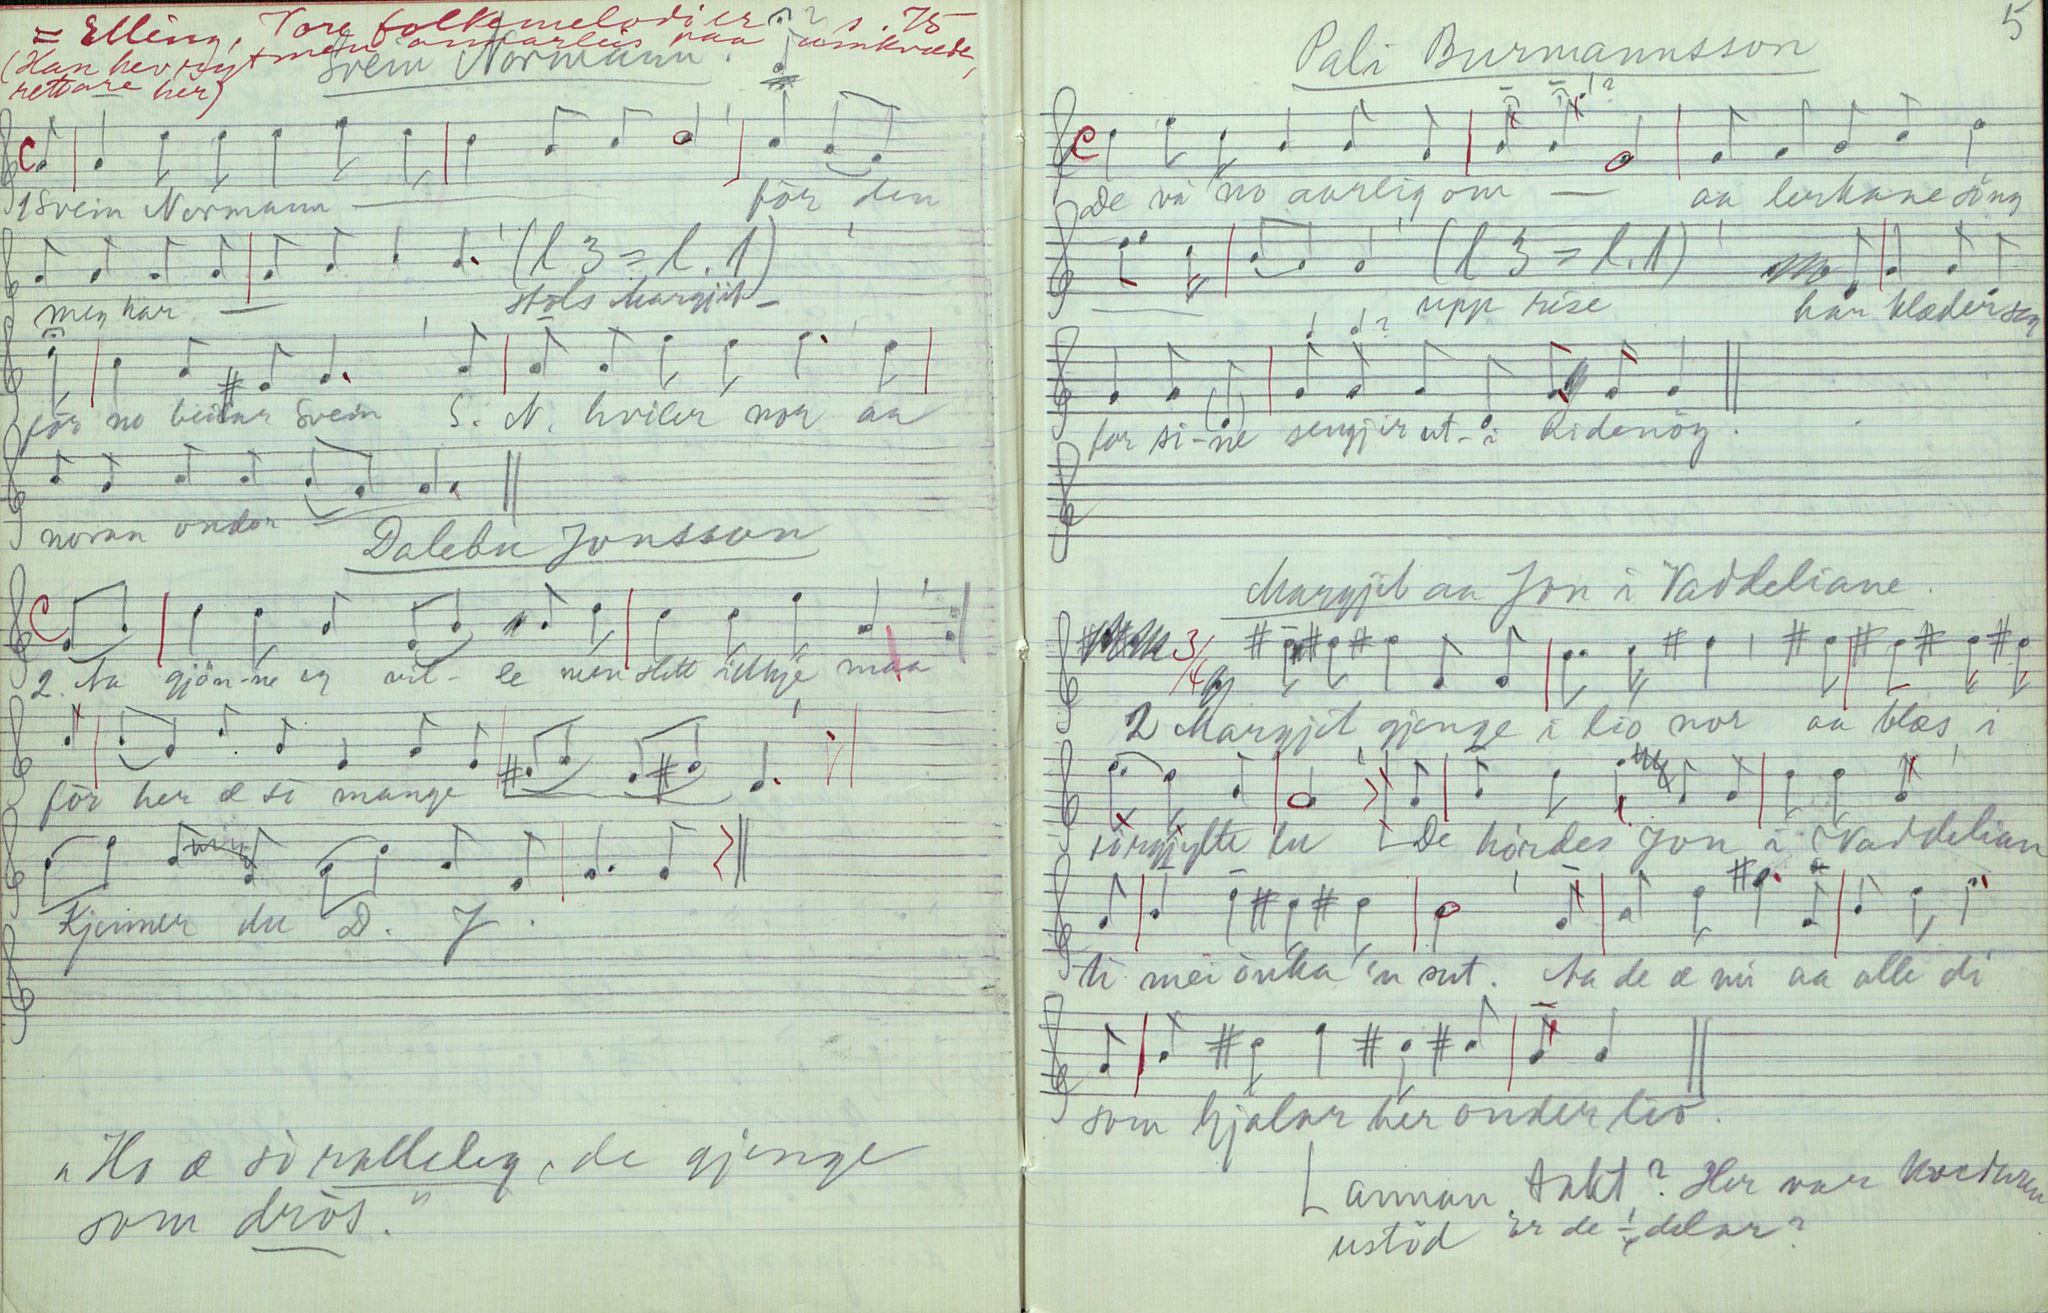 = Elling, Vore folkemelodier s. 75
(Han hev nytt men annarleis paa umkvæde,
rettare her)
Svein Normann.
1 Svein Normann — för den
meg har — (l. 3 = l. 1)
stöls Margjit –
för no beilar Svein S. N. hviler nor aa
noran ondor
Dalebu Jonsson
C
2. Aa gjön-ne eg vil-le men slett ikkje maa
för her æ so mange
Kjenner du D. J.
"Ho æ so ralleleg, de gjenge
som drös."
5
Pali Burmannsson
De va no aarlig om — aa lerkane söng
(l 3 = l. 1)
upp rise han klæder seg
for si-ne sengjir ut-i Ridenög.
Margjit aa Jon i Vaddeliane.
3/4
2 Margjit gjenge i lio nor aa blæs i
sörgjylte lu De hördes Jon i Vaddelian
ti mei önka 'n sut. Aa de æ mi aa alle di
som hjalar her onder lio.
annan takt? Her var kvedaren
ustöd Er de 1/4 delar?